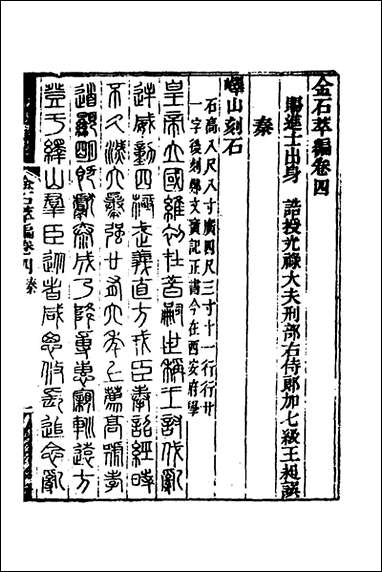 金石萃編卷四
賜進士出身 誥授光祿大夫刑部右侍郎加七級王昶譔
秦
嶧山刻石
石高八尺八寸廣四尺三寸十一行行廿
一字後刻鄭文寶記正書今在西安府學
皇帝立國維初在昔嗣世稱王討伐亂
逆威動四極武義直方戎臣奉詔經時
不久滅六暴強廿有六年上薦高號孝
道顯明既獻泰成乃降專惠寴巡遠方
登于繹山羣臣從者咸思攸長追念亂
金石萃編卷四 秦